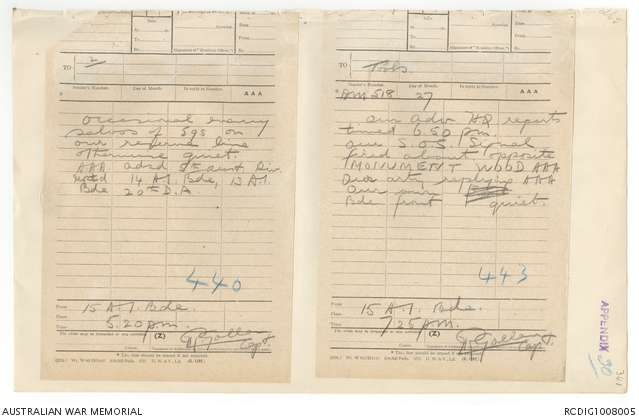 TO 2
Sender's Number. Day of Month. In reply to Number. AAA
Occasional enemy
salvos of 5.9s on
our reserve line
otherwise quiet.
AAA adsd 5th Aust Div
reptd 14 A.I. Bde, 13 A.I.
Bde 20th D.A.
440
From 15 A.I. Bde.
Place
Time 5.20 pm.
(Z)
Capt
TO Tools
Sender's Number. Day of Month. In reply to Number. AAA
BM 518 27
Our adv HQ reports
timed 6.50 pm.
our S.O.S. Signal
fired about opposite
MONUMENT WOOD AAA
Our arty replying AAA
Our own
Bde front quiet.
443
From 15 A.I. Bde.
Place
Time 7.25 pm.
(Z)
Capt.
APPENDIX 20
341
AUSTRALIAN WAR MEMORIAL
RCDIG1008005